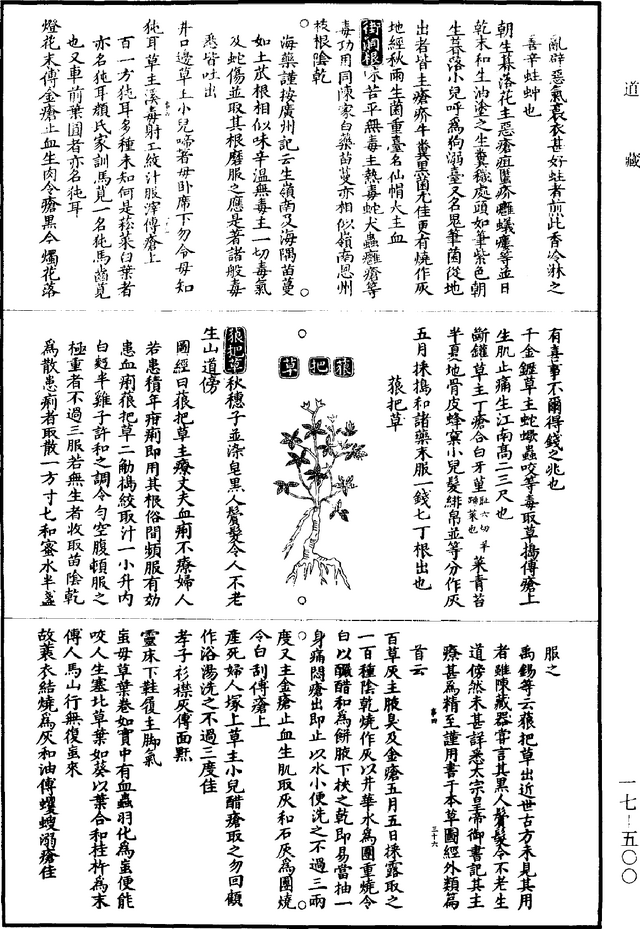 道藏
亂辟惡氣裛衣甚好蛀者前此香冷麻之
喜辛蛀蚛也
朝生暮落花主惡瘡疽䘌疥癰蟻瘻等並日
乾末和生油塗之生糞穢處頭如筆紫色朝
生暮落小兒呼為狗溺臺又名鬼筆菌從地
出者皆主瘡疥牛糞黑菌尤佳更有燒作灰
地經秋雨生菌重臺名仙帽大主血
衝洞根味苦平無毒主熱毒蛇犬蟲癰瘡等
毒功用同陳家白藥苗蔓亦相似嶺南恩州
枝根陰乾
海藥謹按廣州記云生嶺南及海隅苗蔓
如土瓜根相似味辛溫無毒主一切毒氣
及蛇傷並取其根磨服之應是著諸般毒
悉皆吐出
井口邊草主小兒啼著母臥席下勿令母知
㹠耳草主溪毒射工絞汁服滓傅瘡上
百一方㹠耳多種未知何是菘菜白葉者
亦名㹠耳顏氏家訓馬莧一名㹠馬齒莧
也又車前葉圓者亦名㹠耳
燈花末傅金瘡止血生肉令瘡黑今燭花落
有喜事不爾得錢之兆也
千金鑩草主蛇蠍蟲咬等毒取草搗傅瘡上
生肌止痛生江南高二三尺也
斷罐草主丁瘡合白牙堇菜青苔
半夏地骨皮蜂窠小兒髮緋帛並等分作灰
五月採搗和諸藥末服一錢匕丁根出也
菉把草
菉把草
狼把草秋穗子並染皂黑人鬢髮令人不老
生山道傍
圖經曰菉把草主療丈夫血痢不療婦人
若患積年疳痢即用其根俗間頻服有効
患血痢菉把草二觔搗絞取汁一小升內
白麪半雞子許和之調令勻空腹頓服之
極重者不過三服若無生者收取苗陰乾
為散患痢者取散一方寸匕和蜜水半盞
服之
禹錫等云菉把草出近世古方未見其用
者雖陳藏器嘗言其黑人鬢髮令不老生
道傍然未甚詳悉太宗皇帝御書記其主
療甚為精至謹用書于本草圖經外類篇
首云
百草灰主腋臭及金瘡五月五日採露取之
一百種陰乾燒作灰以井華水為團重燒令
白以釅醋和為餅腋下挾之乾即易當抽一
身痛悶瘡出即止以水小便洗之不過三兩
度又主金瘡止血生肌取灰和石灰為團燒
令白刮傅瘡上
產死婦人塚上草主小兒醋瘡取之勿回顧
作浴湯洗之不過三度佳
孝子衫襟灰傅面䵟
靈床下鞋履主脚氣
䖟母草葉卷如實中有血蟲羽化為䖟便能
咬人生塞北草葉如葵以葉合和桂杵為末
傅人馬山行無復䖟來
故蓑衣結燒為灰和油傅蠼螋溺瘡佳
一七-五〇〇